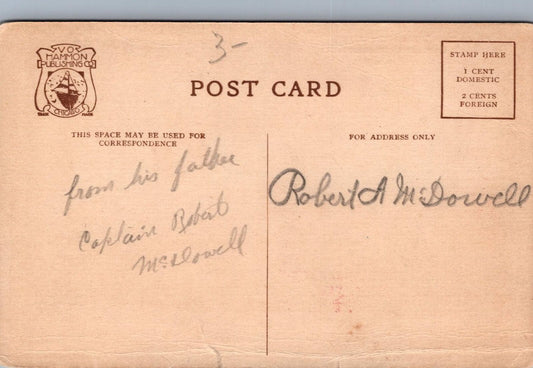 V O
HAMMON
PUBLISHING CO
CHICAGO
3-
POST CARD
STAMP HERE
1 CENT
DOMESTIC
2 CENTS
FOREIGN
THIS SPACE MAY BE USED FOR
CORRESPONDENCE
from his father
Captain Robert
McDowell
FOR ADDRESS ONLY
Robert A McDowell